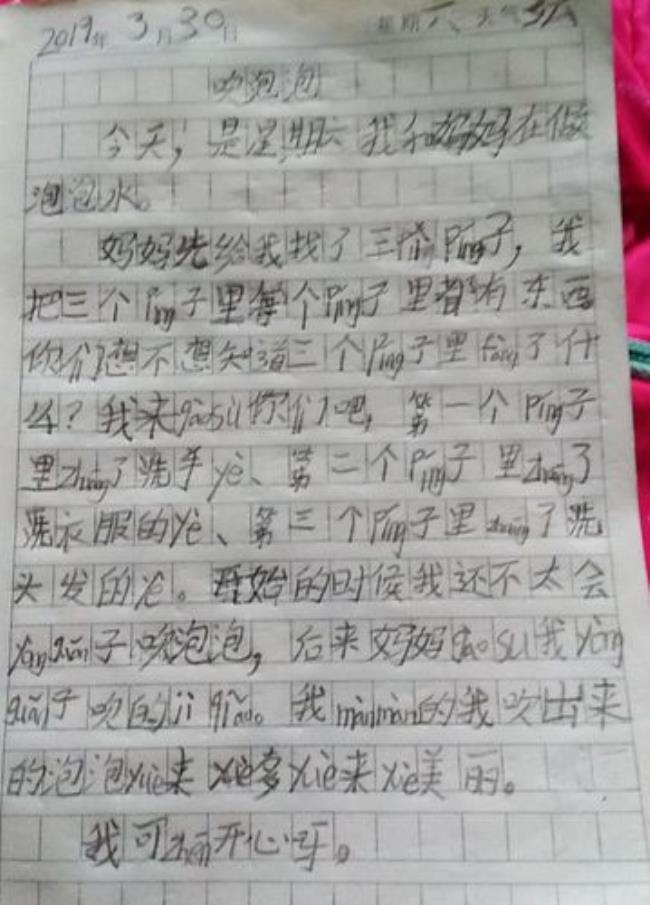 2019年3月30日 星期六、天气
吹泡泡
今天，是星期六我和妈妈在做
泡泡水。
妈妈先给我找了三个Píng子，我
把三个Píng子里每个Píng子里都有东西
你们想不想知道三个Píng子里fàng了什
么？我来gàosù你们吧，第一个Píng子
里zhuāng了洗手yè、第二个Píng子里zhuāng了
洗衣服的yè、第三个Píng子里zhuāng了洗
头发的yè。开始的时候我还不太会
yòng guǎn子吹泡泡，后来妈妈gào sù我yòng
guǎn子吹的jì qiǎo。我mànmàn的我吹出来
的泡泡yuè来yuè多yuè来yuè美丽。
我可zhēn开心呀。